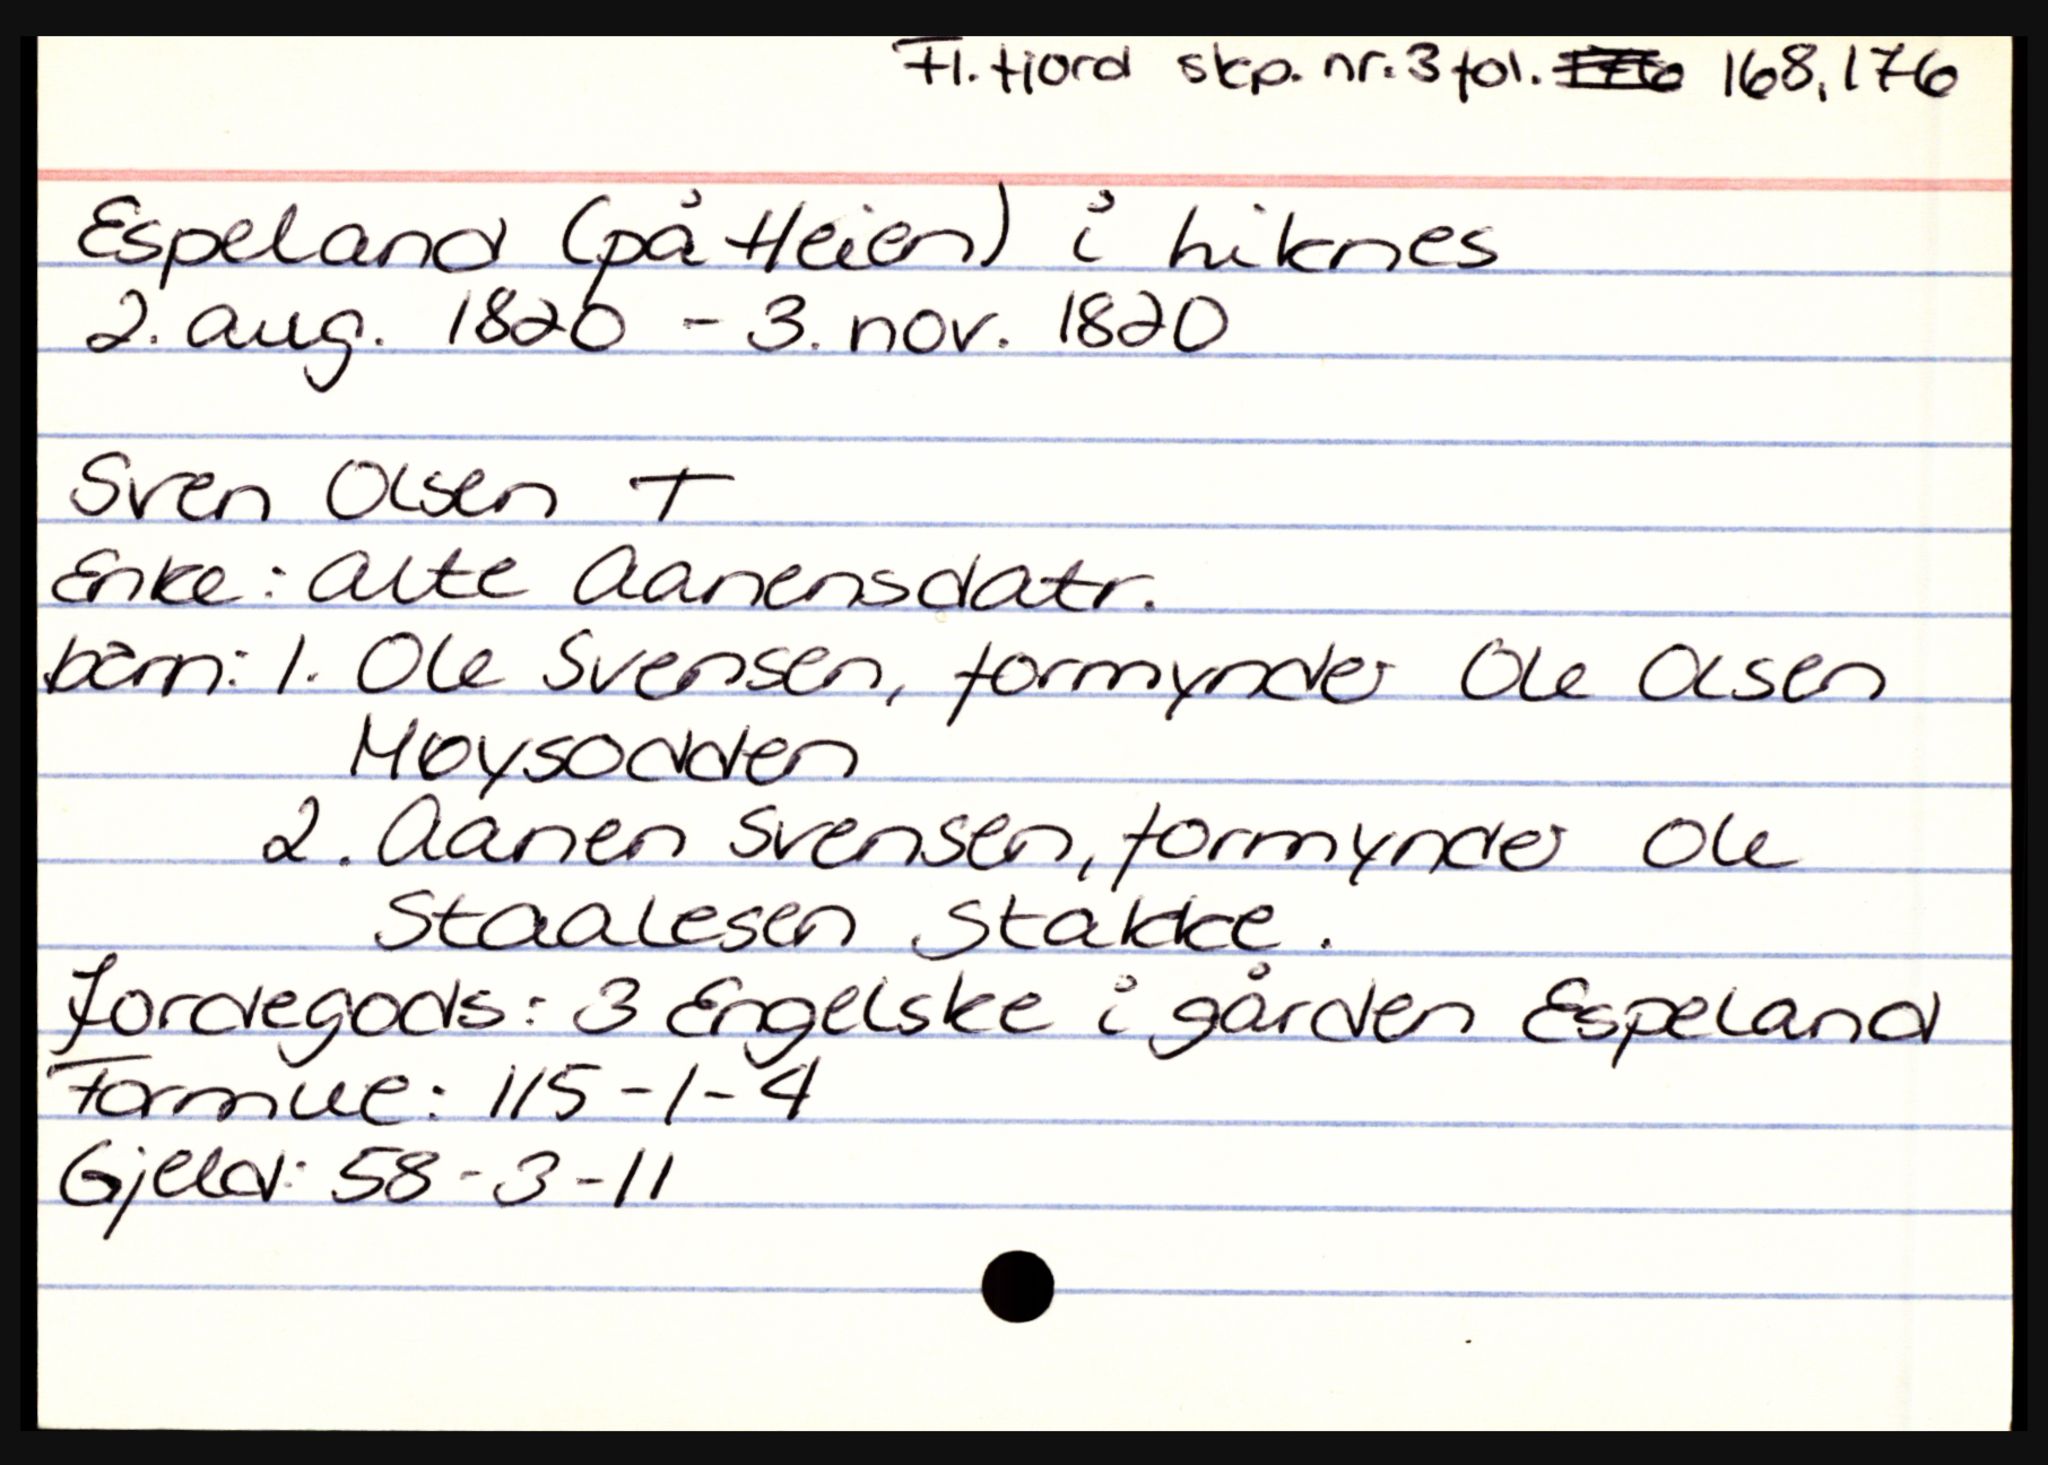 Fl. fjord skp. nr. 3 fol. 168, 176
Espeland (på Heien) i Liknes
2. aug. 1820 - 3. nov. 1820
Sven Olsen †
Enke: Alte Aanensdatr.
børn: 1. Ole Svensen, formynder Ole Olsen
Møysodden
2. Aanen Svensen, formynder Ole
Staalesen Stakke.
Jordegods: 3 Engelske i gården Espeland
Formue: 115-1-4
Gjeld: 58-3-11